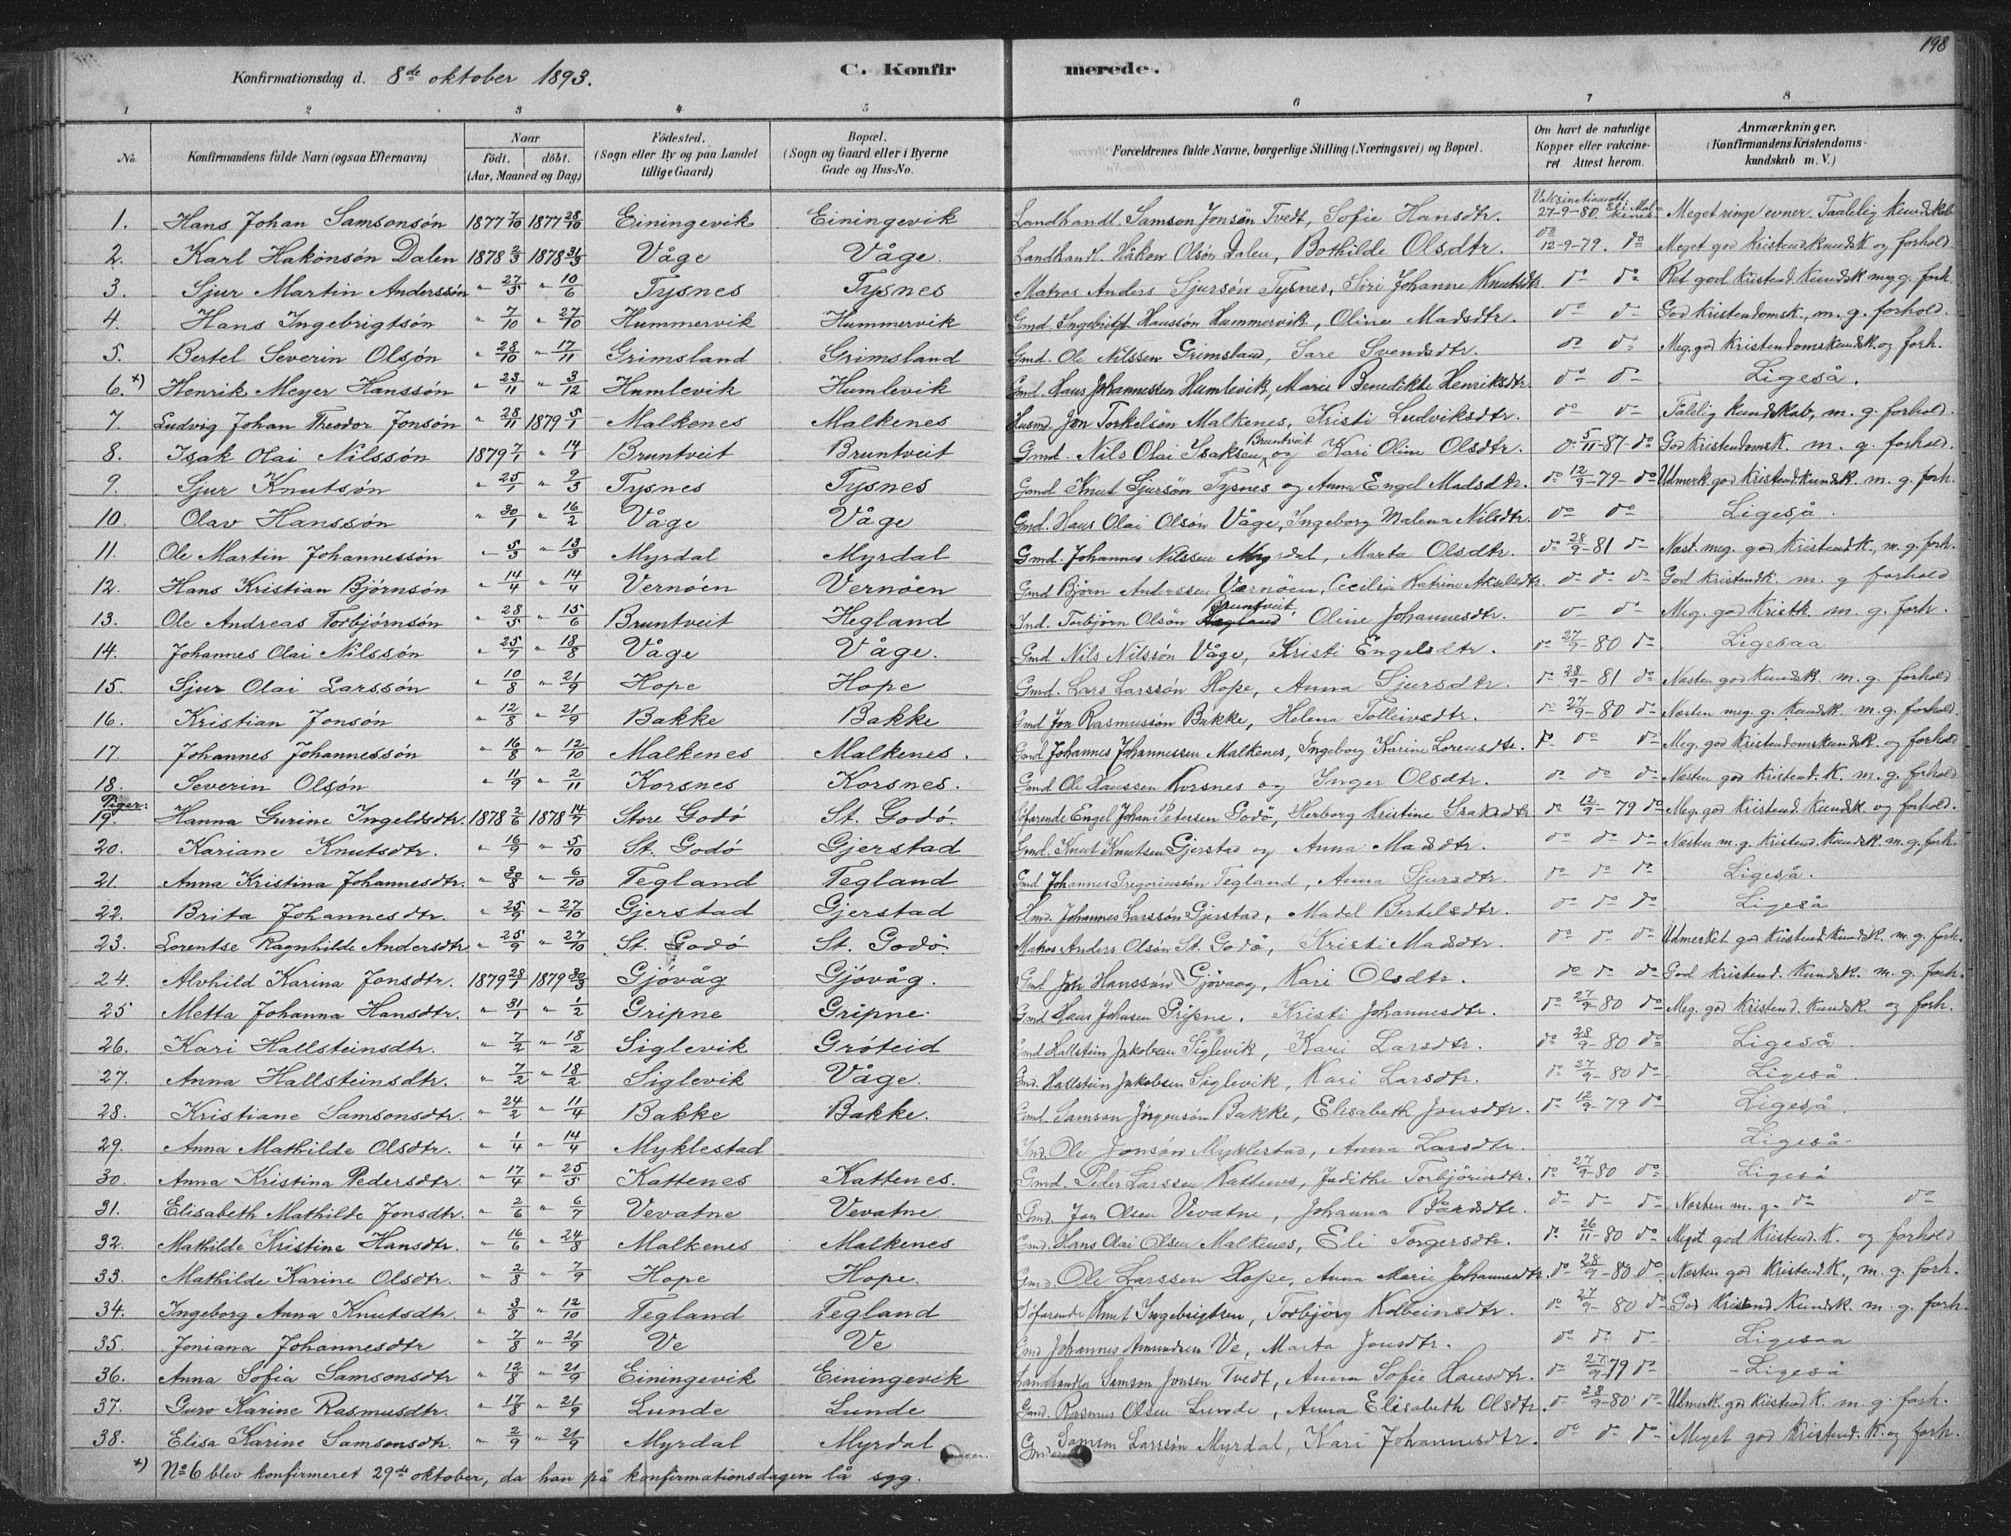 198
Konfirmationsdag d. 8de oktober 1893. C. Konfirmerede.
1 2 3 4 5 6 7 8
No. Konfirmandens fulde Navn (ogsaa Efternavn) Naar födt. döbt. (Aar, Maaned og Dag) Födested. (Sogn eller By og paa Landet tillige Gaard) Bopæl. (Sogn og Gaard eller i Byerne Gade og Hus-No. Forældrenes fulde Navne, borgerlige Stilling (Næringsvei) og Bopæl. Om havt de naturlige Kopper eller vakcineret. Attest herom. Anmærkninger. (Konfirmandens Kristendomskundskab m. V.)
1. Hans Johan Samsonsón 1877 7/10 1877 28/10 Einingevik Einingevik Landhandl. Samson Jonsön Tvedt, Sofie Hansdtr. 27-9-80 Meget ringe evner. Taalelig kundskab
2. Karl Hakónsón Dalen 1878 2/3 1878 31/3 Våge Våge. Landhandl. Håkon Olsön Dalen, Bothilde Olsdtr. do 12-9-79. do Meget god kristend. kundsk og forhold
3. Sjur Martin Anderssón " 27/5 " 10/6 Tysnes Tysnes Matros Anders Sjursön Tysnes, Siri Johanne Knutsdtr. do do Ret god kristend. kundsk meg. g. forh.
4. Hans Ingebrigtsón " 7/10 " 27/10 Hummervik Hummervik Gmd. Ingebrigt Hanssön Hummervik, Oline Madsdtr. do do God kristendomsk., m. g. forhold.
5. Bertel Severin Olsón " 28/10 " 17/11 Grimsland Grimsland Gmd. Ole Nilssen Grimsland, Sare Svendsdtr. do do Meg. god kristendomskundsk. og forh.
6. x) Henrik Meyer Hanssón " 23/11 " 3/12 Humlevik Humlevik Gmd. Hans Johannessen Humlevik, Marie Benedikte Henriksdtr. do do Ligeså.
7. Ludvig Johan Theodor Jonsón " 28/11 1879 5/1 Malkenes Malkenes Husmd. Jon Torkelsön Malkenes, Kristi Ludviksdtr. do do Tålelig kundskab, m. g. forhold.
8. Isak Olai Nilssón 1879 7/1 " 14/1 Bruntveit Bruntveit Gmd. Nils Olai Isaksen Bruntveit og Kari Oline Olsdtr. do 5/11-87 do God kristendomsk. m. g. forhold.
9. Sjur Knutsón " 25/1 " 9/3 Tysnes Tysnes Gmd Knut Sjursön Tysnes og Anna Engel Madsdtr. do 12/9-79 do Udmerk. god kristend. kundsk. m. g. forh.
10. Olav Hanssón " 30/1 " 16/2 Våge Våge Gmd. Hans Olai Olsön Våge, Ingeborg Malena Nilsdtr. do do Ligeså.
11. Ole Martin Johannessón " 5/3 " 13/3 Myrdal Myrdal Gmd. Johannes Nilssen Myrdal, Marta Olsdtr. do 28/9-81 do Næst. meg. god kristendk., m. g. forh.
12. Hans Kristian Bjórnsón " 14/4 " 14/4 Vernóen Vernóen Gmd Björn Anderssen Værnöen, Cecilia Katrine Akselsdtr. do do do God kristendk. m. g forhold
13. Ole Andreas Torbjórnsón " 28/5 " 15/6 Bruntveit Hegland Ind. Torbjörn Olsön Hegland Bruntveit, Oline Johannesdtr. do do Meg. god kristk. m. g. forh.
14. Johannes Olai Nilssón " 25/7 " 18/8 Våge Våge. Gmd Nils Nilssön Våge, Kristi Engelsdtr. do 27/9-80 do Ligesaa
15. Sjur Olai Larssón " 10/8 " 21/9 Hope Hope Gmd. Lars Larssön Hope, Anna Sjursdtr. do 28/9-81 do Næsten god kundsk. m. g. forhold
16. Kristian Jonsón " 12/8 " 21/9 Bakke Bakke Gmd Jon Rasmussön Bakke, Helena Tolleivsdtr. do 27/9-80 do Næsten meg. g. kundsk. m. g. forhold.
17. Johannes Johannessón " 16/8 " 12/10 Malkenes Malkenes. Gmd Johannes Johannessen Malkenes, Ingeborg Karine Lorensdtr. do do do Meg. god kristendomskundsk. og forhold
18. Severin Olsón " 11/9 " 2/11 Korsnes Korsnes. Gmd Ole Hanssen Korsnes og Inger Olsdtr. do do do Næsten god kristend. k. m. g. forhold
Piger:
19. Hanna Gurine Ingeldsdtr. 1878 2/6 1878 14/7 Store Godó St. Godó. Söfarende Engel Johan Petersen Godö, Herborg Kristine Isaksdtr do 12/9-79 do Meg. god kristend. kundsk. og forhold.
20. Kariane Knutsdtr. " 16/9 " 5/10 St. Godó Gjerstad Gmd. Knut Knutsen Gjerstad og Anna Madsdtr. do do do Næsten m. g. kristend. kundsk. m. g. forh.
21. Anna Kristina Johannesdtr. " 30/8 " 6/10 Tegland Tegland Gmd Johannes Gregoriussön Tegland, Anna Sjursdtr. do do do Ligeså.
22. Brita Johannesdtr. " 25/9 " 27/10 Gjerstad Gjerstad Hmd. Johannes Larssön Gjerstad, Madel Bertelsdtr. do do do Ligeså
23. Lorentse Ragnhilde Andersdtr " 25/9 " 27/10 St. Godó St. Godó. Matros Anders Olsön St. Godö, Kristi Madsdtr. do do do Udmerket god kristend. kundsk. m. g. forh.
24. Alvhild Karina Jonsdtr. 1879 28/1 1879 30/3 Gjóvåg Gjóvåg. Gmd Jon Hanssön Gjövaag, Kari Olsdtr. do do do God kristend. kundsk. m. g. forh.
25 Metta Johanna Hansdtr. " 31/1 " 1/2 Gripne Gripne. Gmd Hans Johnsen Gripne, Kristi Johannesdtr. do 27/9-80 do Meg. god kristend. kundsk. og forh.
26. Kari Hallsteinsdtr. " 7/2 " 18/2 Siglevik Gróteid Gmd Hallstein Jakobsen Siglevik, Kari Larsdtr. do 28/9-80 do Ligeså.
27. Anna Hallsteinsdtr. " 7/2 " 18/2 Siglevik Våge. Gmd. Hallstein Jakobsen Siglevik, Kari Larsdtr. do 27/9-80 do Ligeså.
28. Kristiane Samsonsdtr. " 24/2 " 11/4 Bakke Bakke. Gmd. Samson Jörgensön Bakke, Elisabeth Jonsdtr. do 12/9 79 do Ligeså.
29. Anna Mathilde Olsdtr. " 1/4 " 14/4 Myklestad Ind. Ole Jonsön Myklestad, Anna Larsdtr. Ligeså.
30. Anna Kristina Pedersdtr. " 17/4 " 25/5 Kattenes Kattenes. Gmd. Peder Larssen Kattenes, Judithe Torbjörnsdtr. do 27/9-80 do Ligeså
31. Elisabeth Mathilde Jonsdtr. " 2/6 " 6/7 Vevatne Vevatne. Gmd. Jon Olsen Vevatne, Johanna Bårdsdtr. do do do Næsten m. g. do do
32. Mathilde Kristine Hansdtr. " 16/6 " 24/8 Malkenes Malkenes Gmd. Hans Olai Olsen Malkenes, Eli Torgersdtr. do 26/11-80 do Meget god kristend. k. og forhold
33. Mathilde Karine Olsdtr. " 2/8 " 7/9 Hope Hope. Gmd Ole Larssen Hope, Anna Marie Johannesdtr do 28/9-80 do Næsten god kristend. k., m. g. forh.
34. Ingeborg Anna Knutsdtr. " 3/8 " 12/10 Tegland Tegland Söfarende Knut Ingebrigtsen, Torbjörg Kolbeinsdtr. do 27/9-80 do God kristend. kundsk. m. g. forh.
35. Joniana Johannesdtr " 7/8 " 21/9 Ve Ve Gmd Johannes Amundsen Ve, Marta Jonsdtr. do do do Ligesaa
36. Anna Sofia Samsonsdtr " 12/8 " 21/9 Einingevik Einingevik Landhandler Samson Jonsen Tvedt, Anna Sofie Hansdtr. do 27/9 79 do Ligeså
37. Guro Karine Rasmusdtr. " 17/8 " 21/9 Lunde Lunde Gmd. Rasmus Olsen Lunde, Anna Elisabeth Olsdtr. do 28/9-80 do Udmerk. god kristend. k. m. g. forh.
38. Elisa Karine Samsonsdtr. " 2/9 " 21/9 Myrdal Myrdal Gmd Samson Larssön Myrdal, Kari Johannesdtr. do do do Meget god kristend. k. og forh.
x) No 6 blev konfirmeret 29de oktober, da han på konfirmationsdagen lå syg.